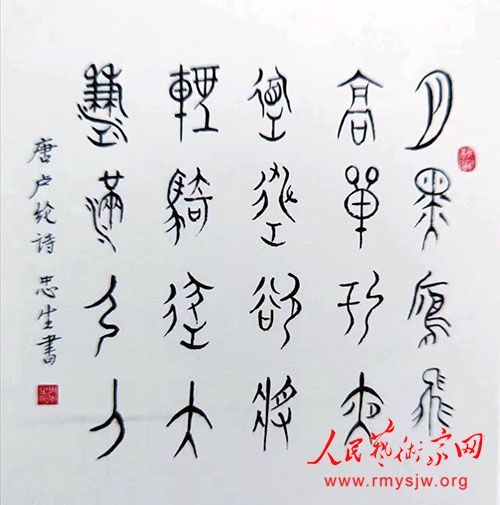 月黑雁飛
高單于夜
遁逃欲將
輕騎逐大
雪滿弓刀
唐卢纶詩 忠生書
人民藝術家网
www.rmysjw.org